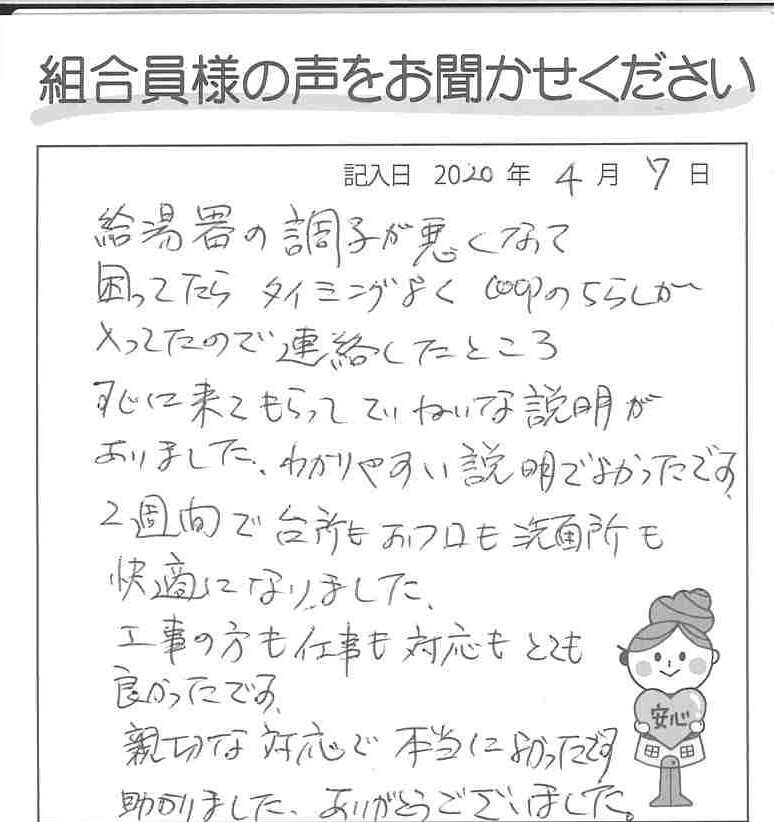 組合員様の声をお聞かせください
記入日 2020 年 4 月 7 日
給湯署の調子が悪くなって
困ってたら タイミングよく coopのちらしが
入ってたので 連絡したところ
すぐに来てもらって ていねいな説明が
ありました、わかりやすい説明でよかったです、
2週間で 台所も おフロも 洗面所も
快適になりました、
工事の方も 仕事も 対応も とても
良かったです、
親切な 対応で 本当に よかったです
助かりました、ありがとうございました。
安心